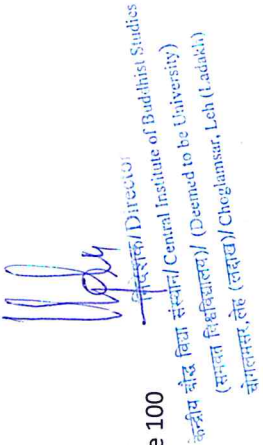 निदेशक/Director
केन्द्रीय बौद्ध विद्या संस्थान/Central Institute of Buddhist Studies
(समवत विश्वविद्यालय)/ (Deemed to be University)
चोगलमसर, लेह (लद्दाख)/ Choglamsar, Leh (Ladakh)
e 100